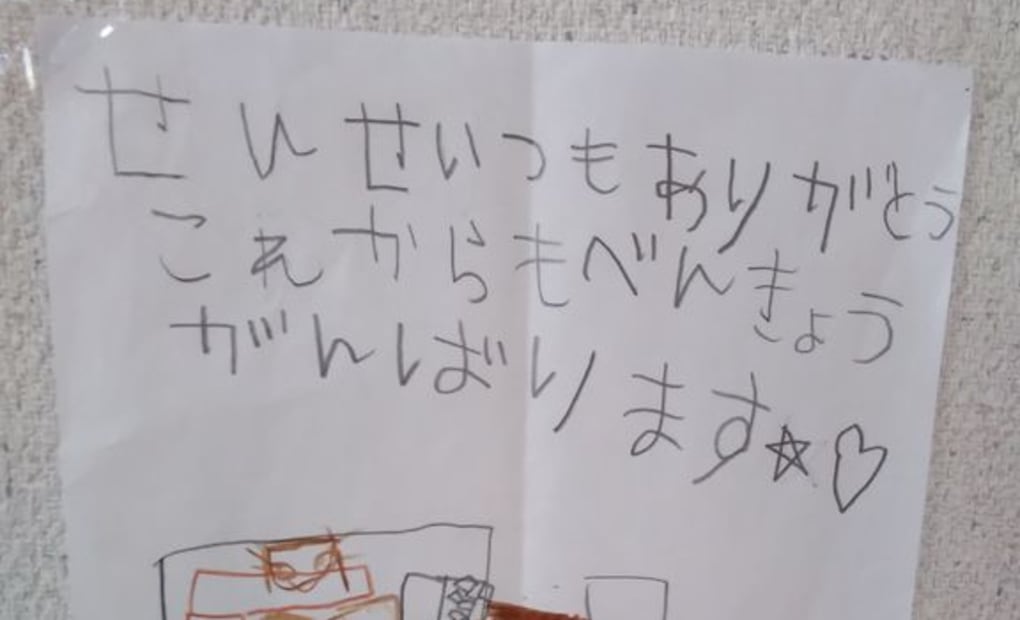 せんせいつもありがとう
これからもべんきょう
がんばります☆♡